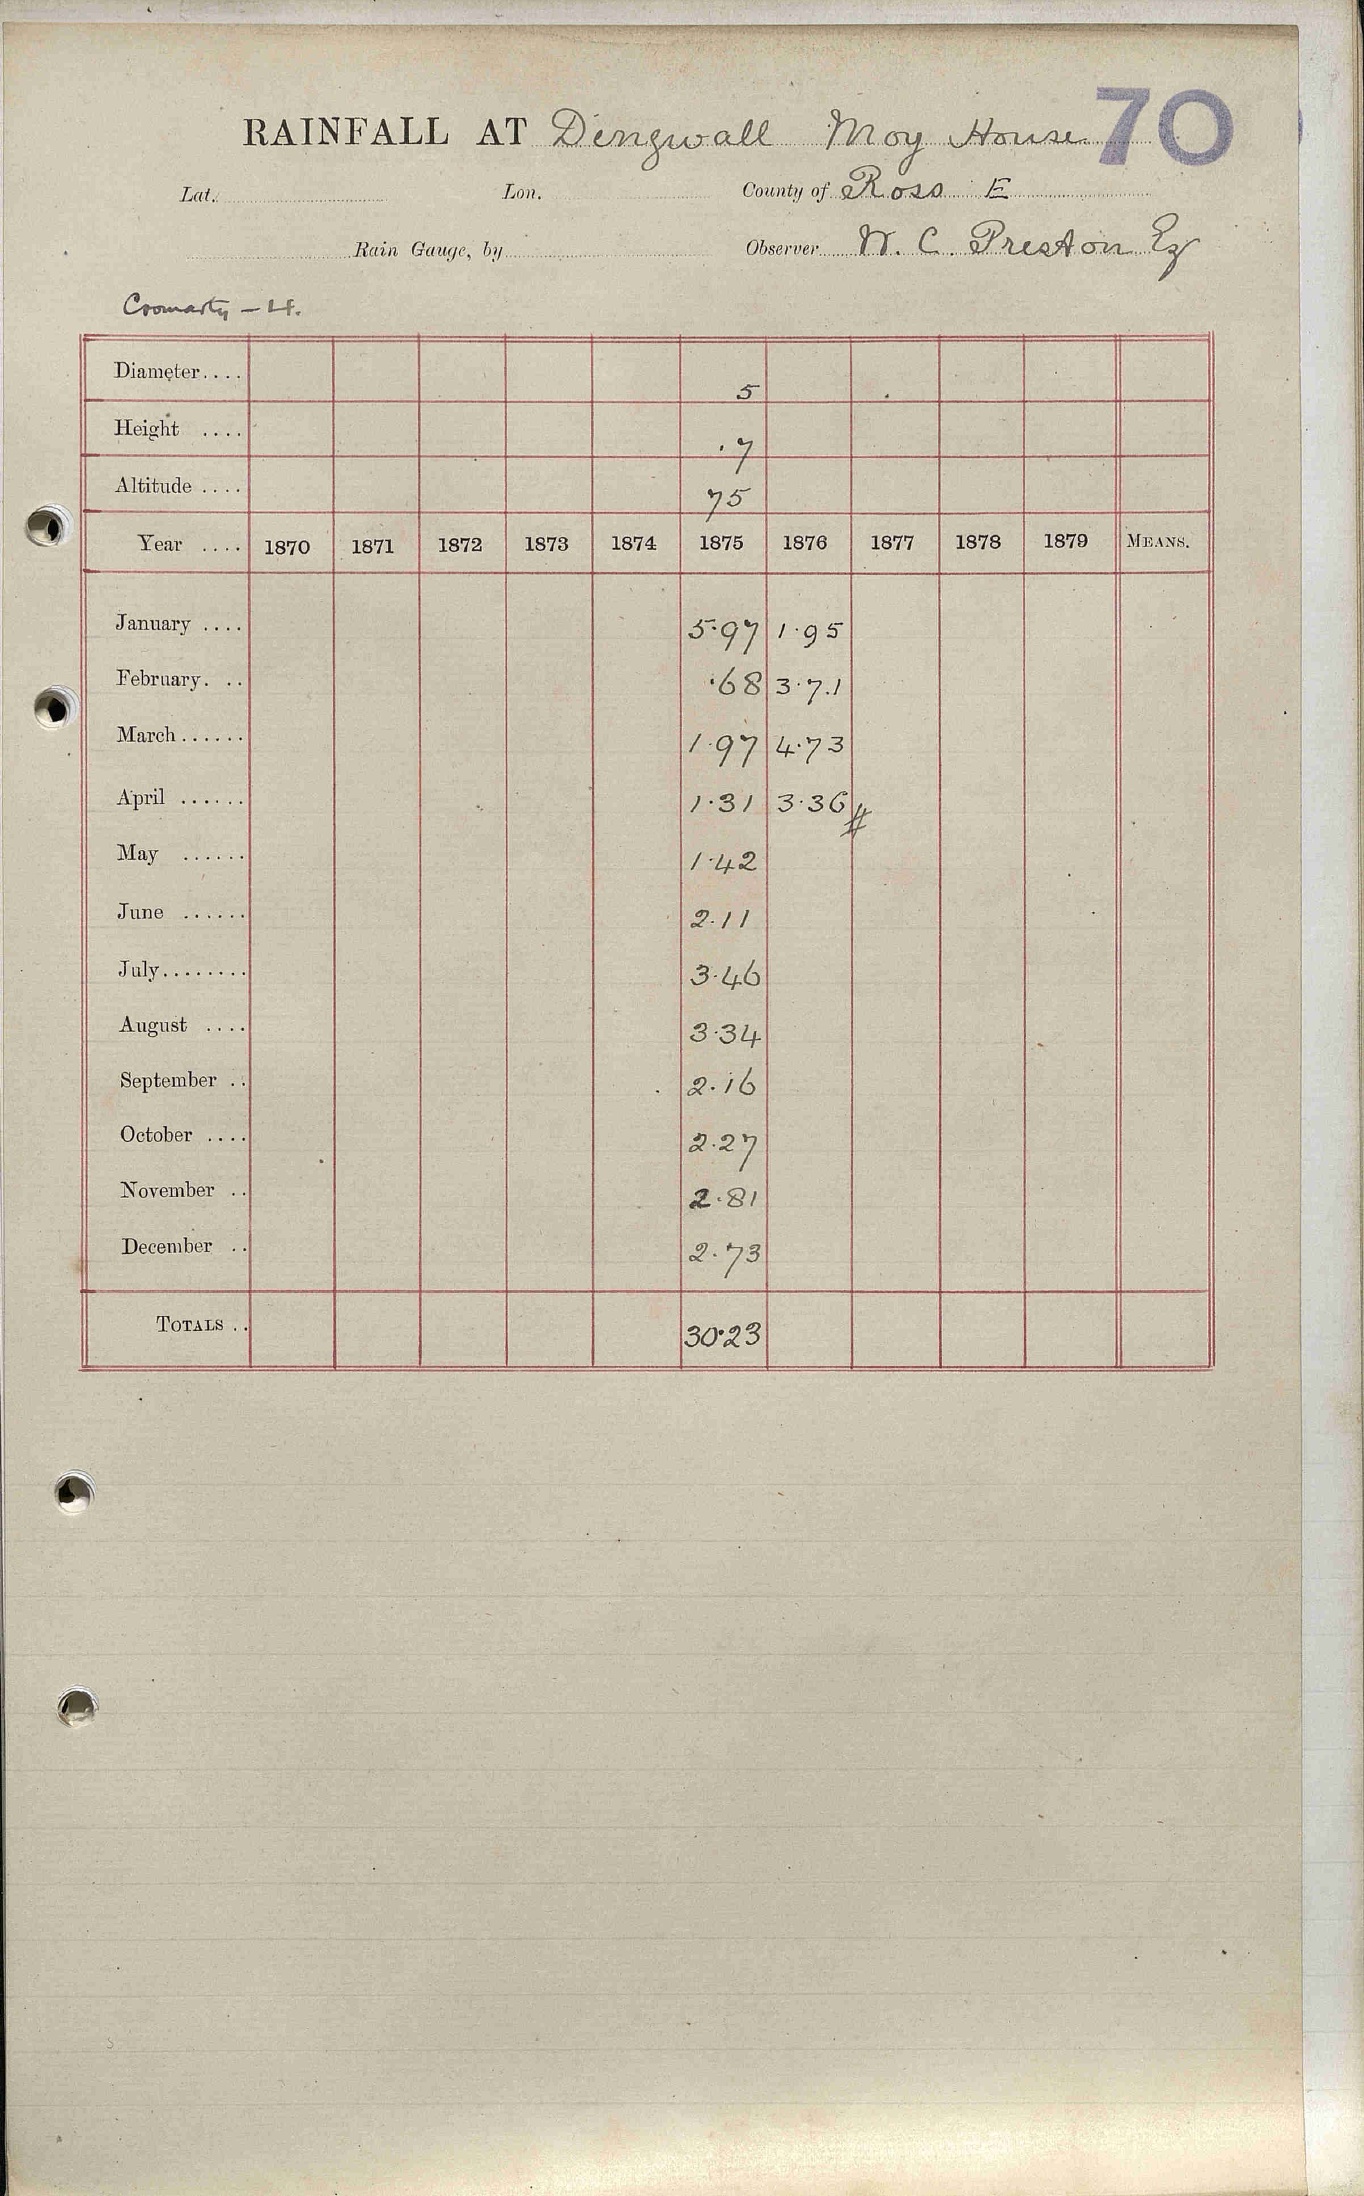 RAINFALL AT Dingwall Moy House 70
Lat. Lon. County of Ross E
Rain Gauge, by Observer W. C. Preston Esq
Cromarty – H.
Diameter.... 5
Height .... .7
Altitude .... 75
Year .... 1870 1871 1872 1873 1874 1875 1876 1877 1878 1879 MEANS.
January .... 5.97 1.95
February. .. .68 3.71
March...... 1.97 4.73
April ...... 1.31 3.36 #
May ...... 1.42
June ...... 2.11
July........ 3.46
August .... 3.34
September .. 2.16
October .... 2.27
November .. 2.81
December .. 2.73
TOTALS .. 30.23